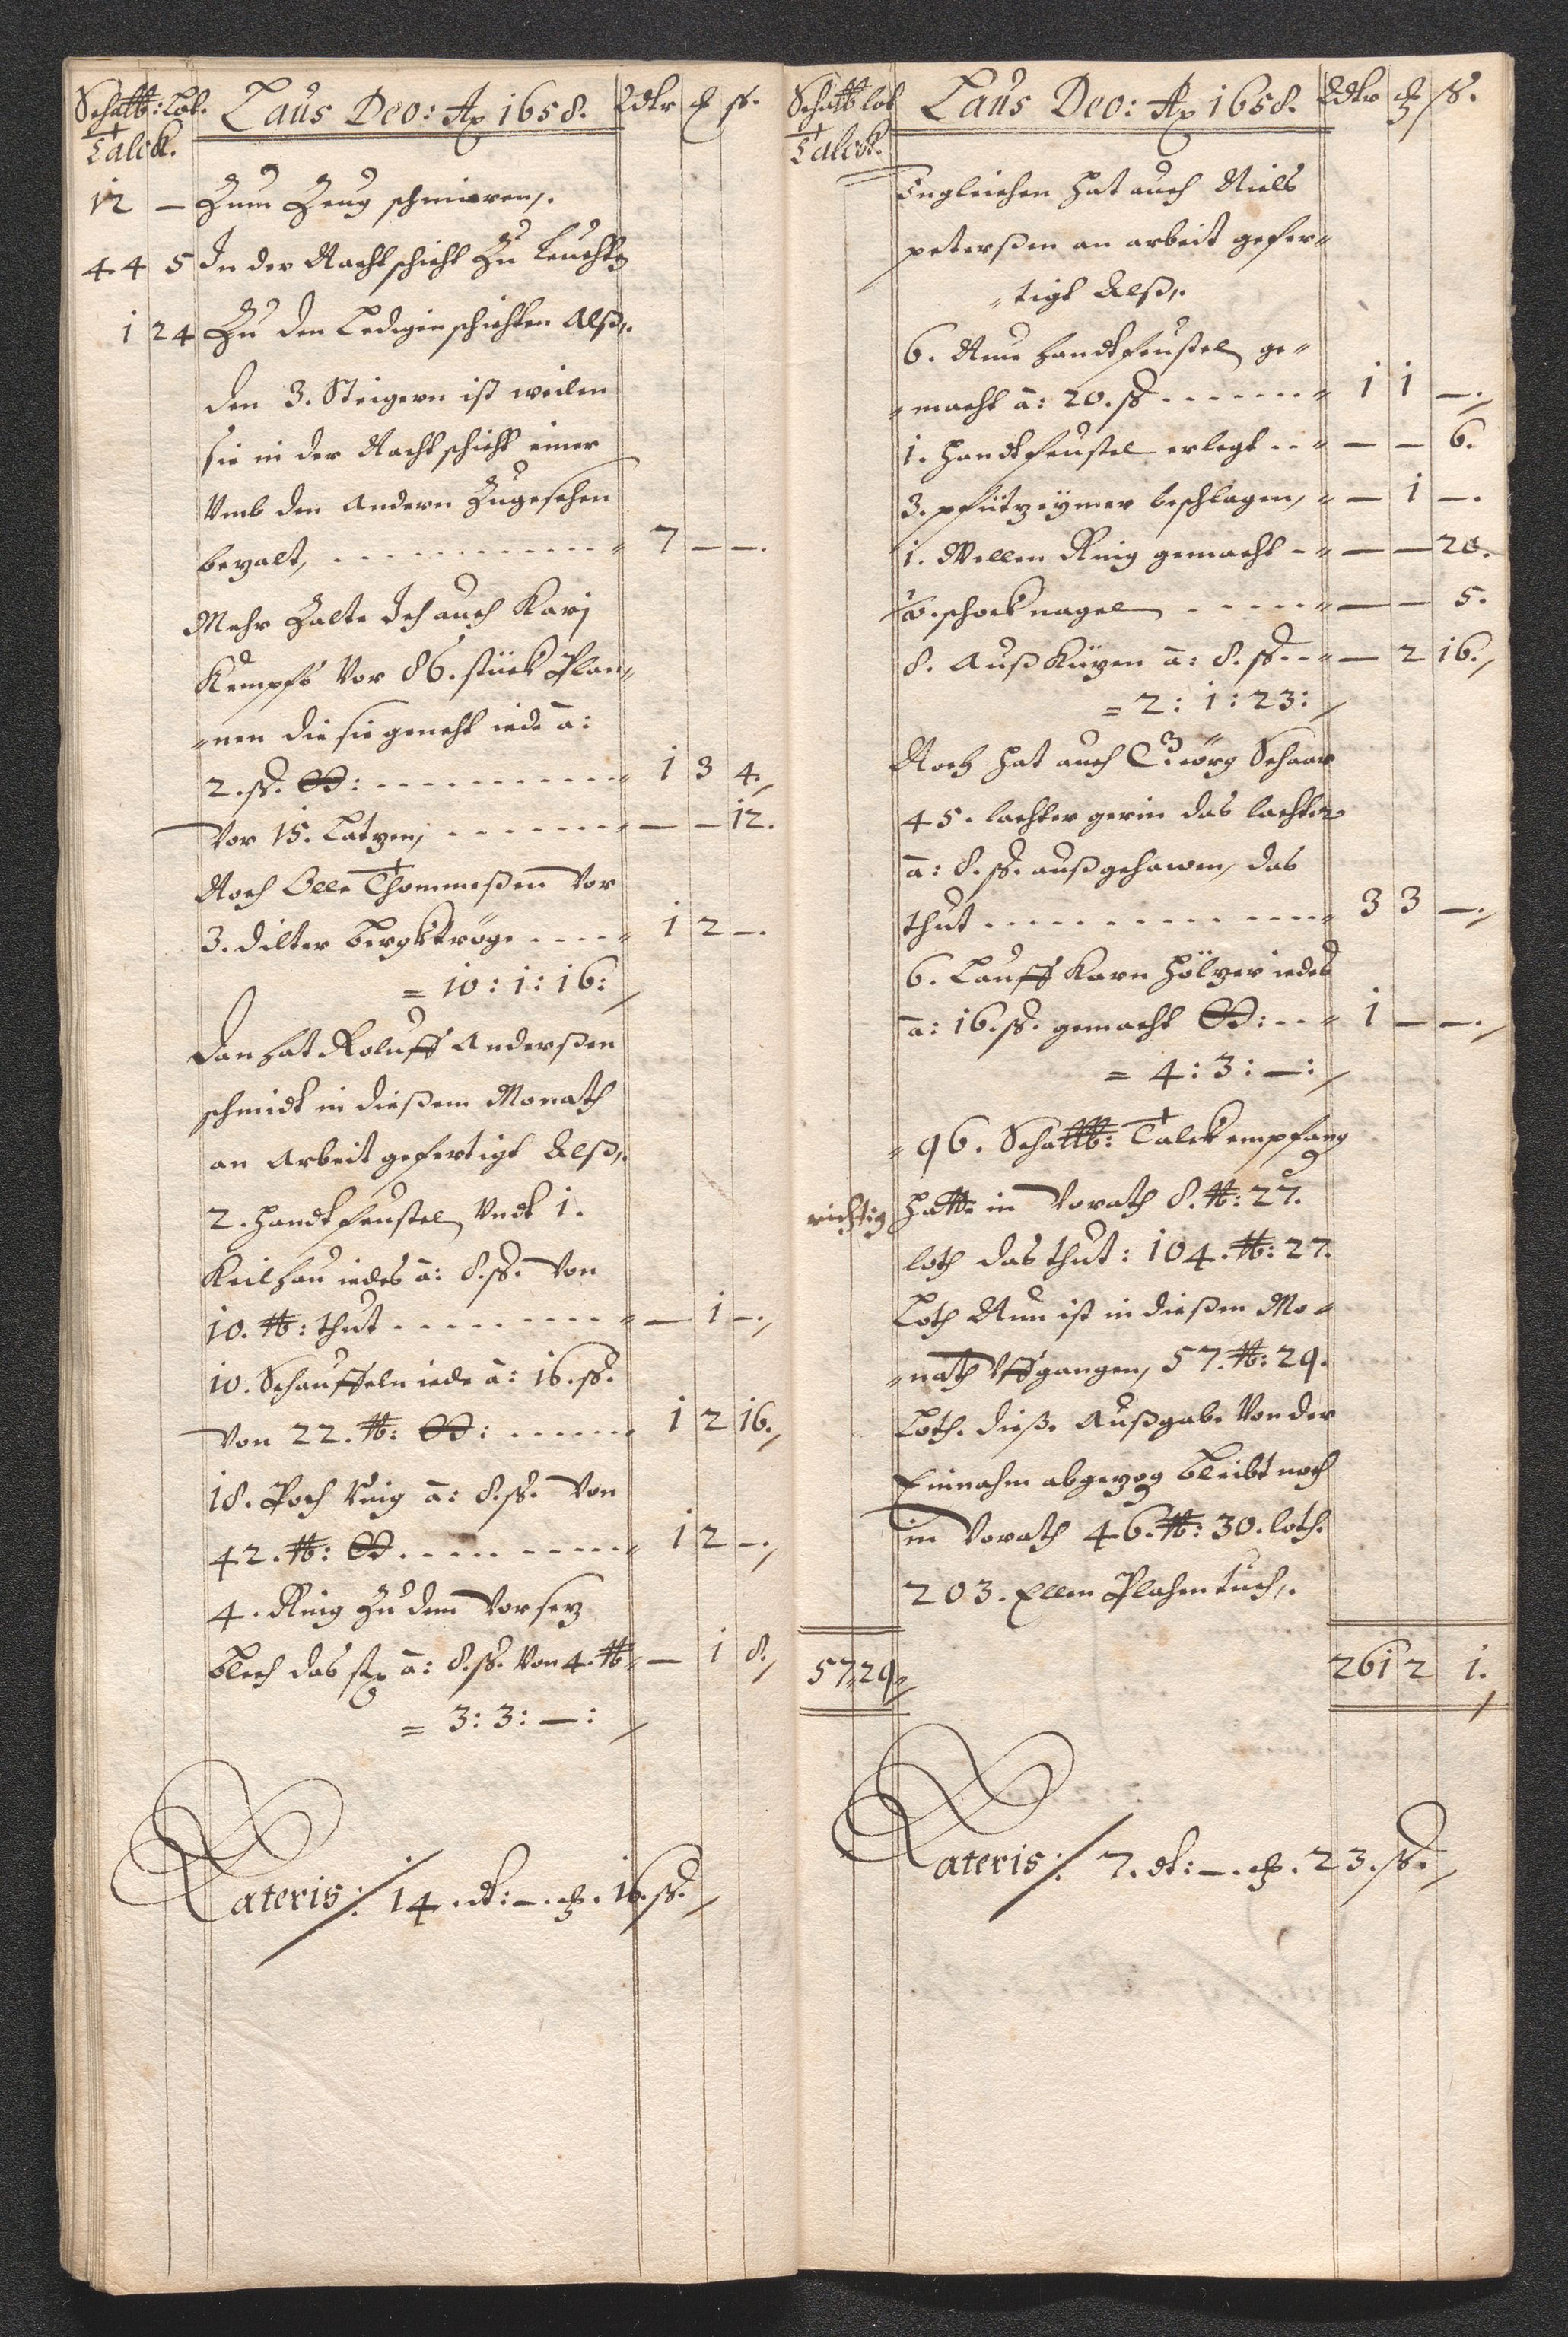 Scha℔: Lot. Laus Deo: Ao 1658. Rdlr ₰ ß.
Talck.
12 — Zum Zeug schmieren,.
44 5 In der Nacht schicht Zu Leuchtẽ
1 24 Zu den Ledigen schichten Alß,.
Den 3. Steigern ist weilen
sie in der Nacht schicht einer
Vmb den Andern Zugesehen
bezalt, 7 — —.
Mehr Zalte Ich auch Karj
Kempfs Vor 86. stück Plan„
„nen die sie geneht iede â:
2. ß. 1 3 4.
Vor 15. Latzen, — — 12.
Noch Olle Thommeßen Vor
3. dilter Bergktröge 1 2 —.
= 10: 1: 16:
Dan hat Roluff Anderßen
schmidt in dießem Monath
an Arbeit gefertigt Alß,.
2. Handtfeustel, Vndt 1.
Keilhau iedes â: 8. ß. Von
10. ℔: thut — 1 —.
10. Schauffeln iede â: 16. ß.
Von 22. ℔: 1 2 16.
18. Poch Ring â: 8. ß. Von
42. ℔: 1 2 —.
4. Ring Zu dem Vorsez
blech das st â: 8. ß. Von 4. ℔ — 1 8.
= 3: 3: —:
Lateris: 14. dl: —. ₰. 16 ß.
Scha℔ lot Laus Deo: Ao 1658. Rdlr ₰ ß.
Talck.
Ingleichen hat auch Niels
peterßen an arbeit gefer„
„tigt Alß,.
6. Neue Handtfeustel, ge„
„macht â: 20. ß 1 1 —.
1. Handtfeustel erlegt — — 6.
3. pfützeymer beschlagen, — 1 —.
1. Wellen Ring gemacht — — 20.
schock nagel — — 5.
8. Auß Kützen â: 8. ß. — 2 16.
= 2: 1: 23:
Noch hat auch Georg Schaar
45. lachter gerin das lachter
â: 8. ß. außgehawen, das
thut 3 3 —.
6. Lauff Karn Hölzer iedes
â: 16. ß. gemacht 1 — —.
= 4: 3: —:
„96. Scha℔: Talck empfang
richtig hatte in Vorath 8. ℔: 27.
loth das thut: 104. ℔: 27.
Loth Nun ist in dießem Mo„
„nath Vffgangen, 57. ℔: 29.
Loth. diese Außgabe Von der
Einnahm abgezog bleibt noch
in Vorath 46. ℔: 30. loth.
203. Ellen Plahentuch,.
57 29 261 2 1.
Lateris: 7. dl: —. ₰. 23. ß.